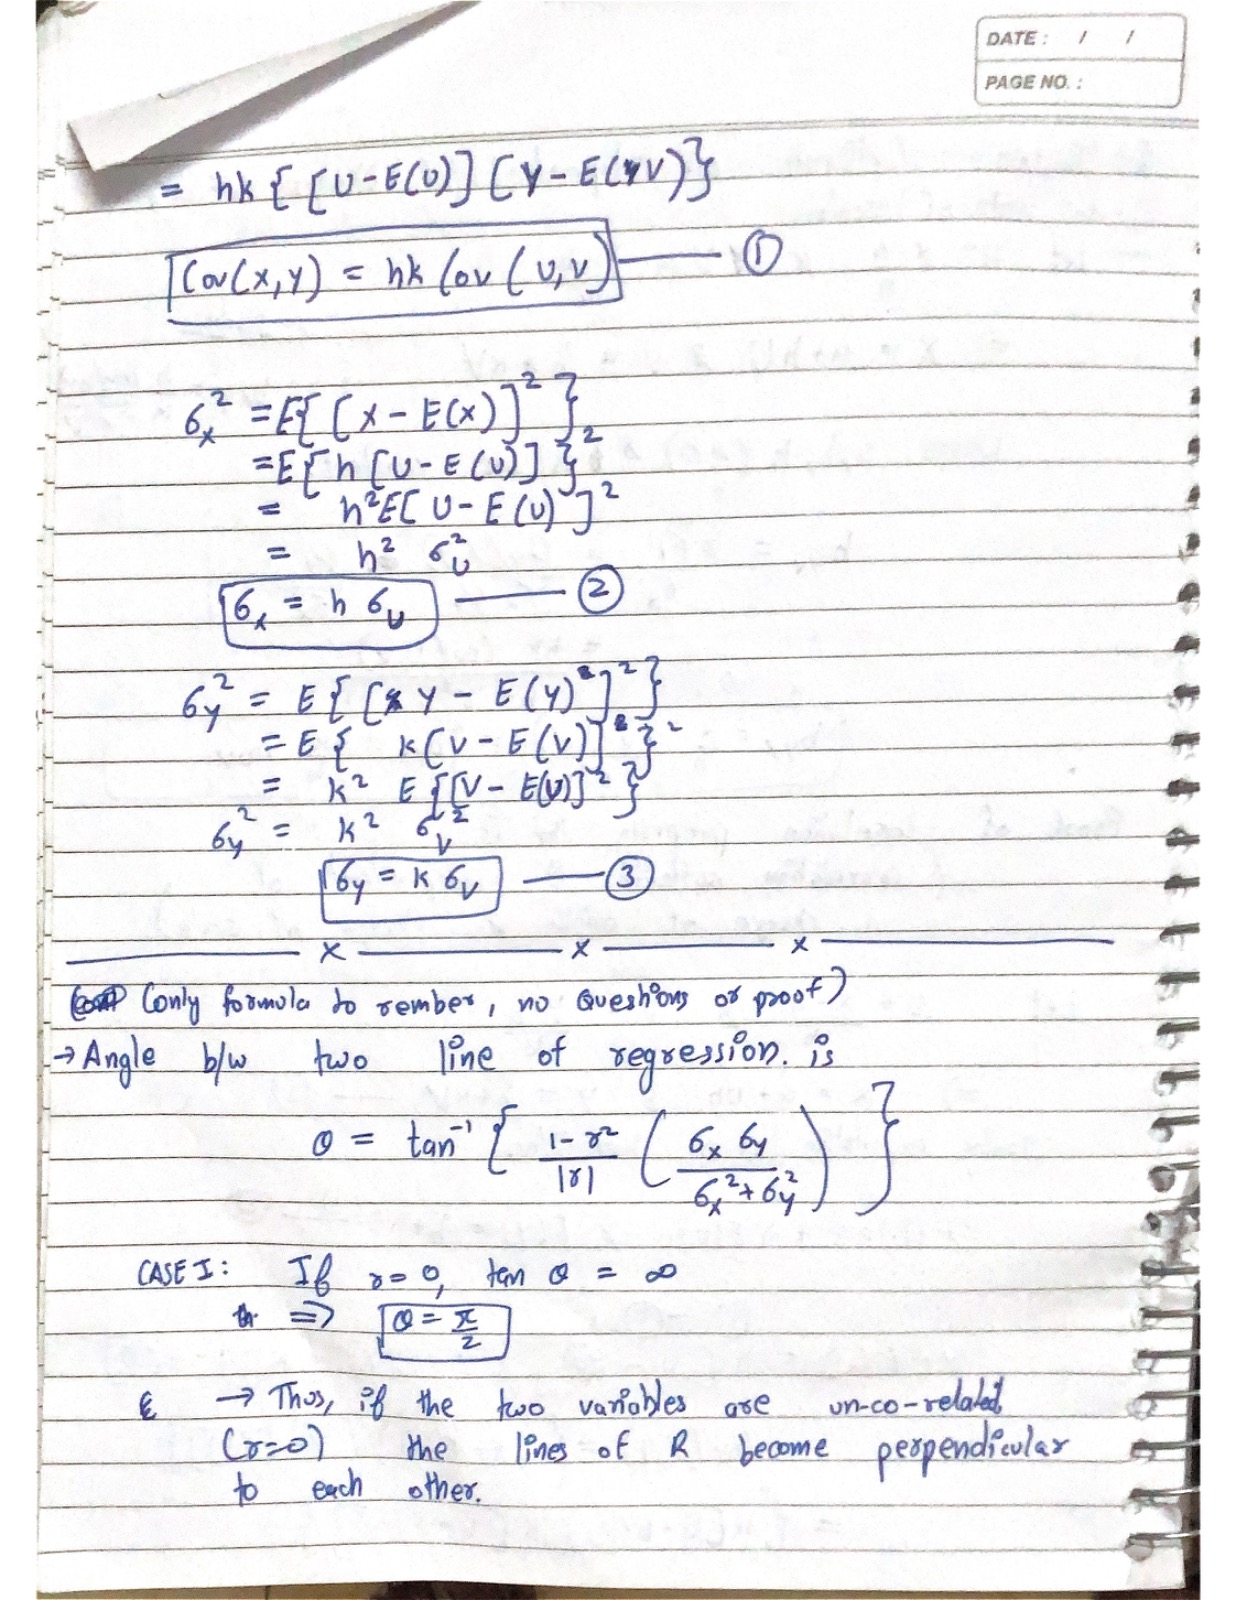 DATE : / /
PAGE NO. :
= hk { [U-E(U)] [Y-E(V)}
Cov(x,y) = hk Cov (U,V) — ①
σx² = E{ [x - E(x)]² }
= E{ h [U-E(U)] }²
= h²E[ U - E(U) ]²
= h² σU²
σx = h σU — ②
σy² = E{ [Y - E(Y)]² }
= E { k[V - E(V)] }²
= k² E {[V - E(V)]² }
σy² = k² σV²
σy = k σV — ③
x x x
(only formula to rember, no Questions or proof)
→ Angle b/w two line of regression. is
θ = tan⁻¹ { 1-r² / |r| ( σx σy / σx² + σy² ) }
CASE I : If r=0, tan θ = ∞
⇒ θ = π/2
→ Thus, if the two variables are un-co-related
(r=0) the lines of R become perpendicular
to each other.